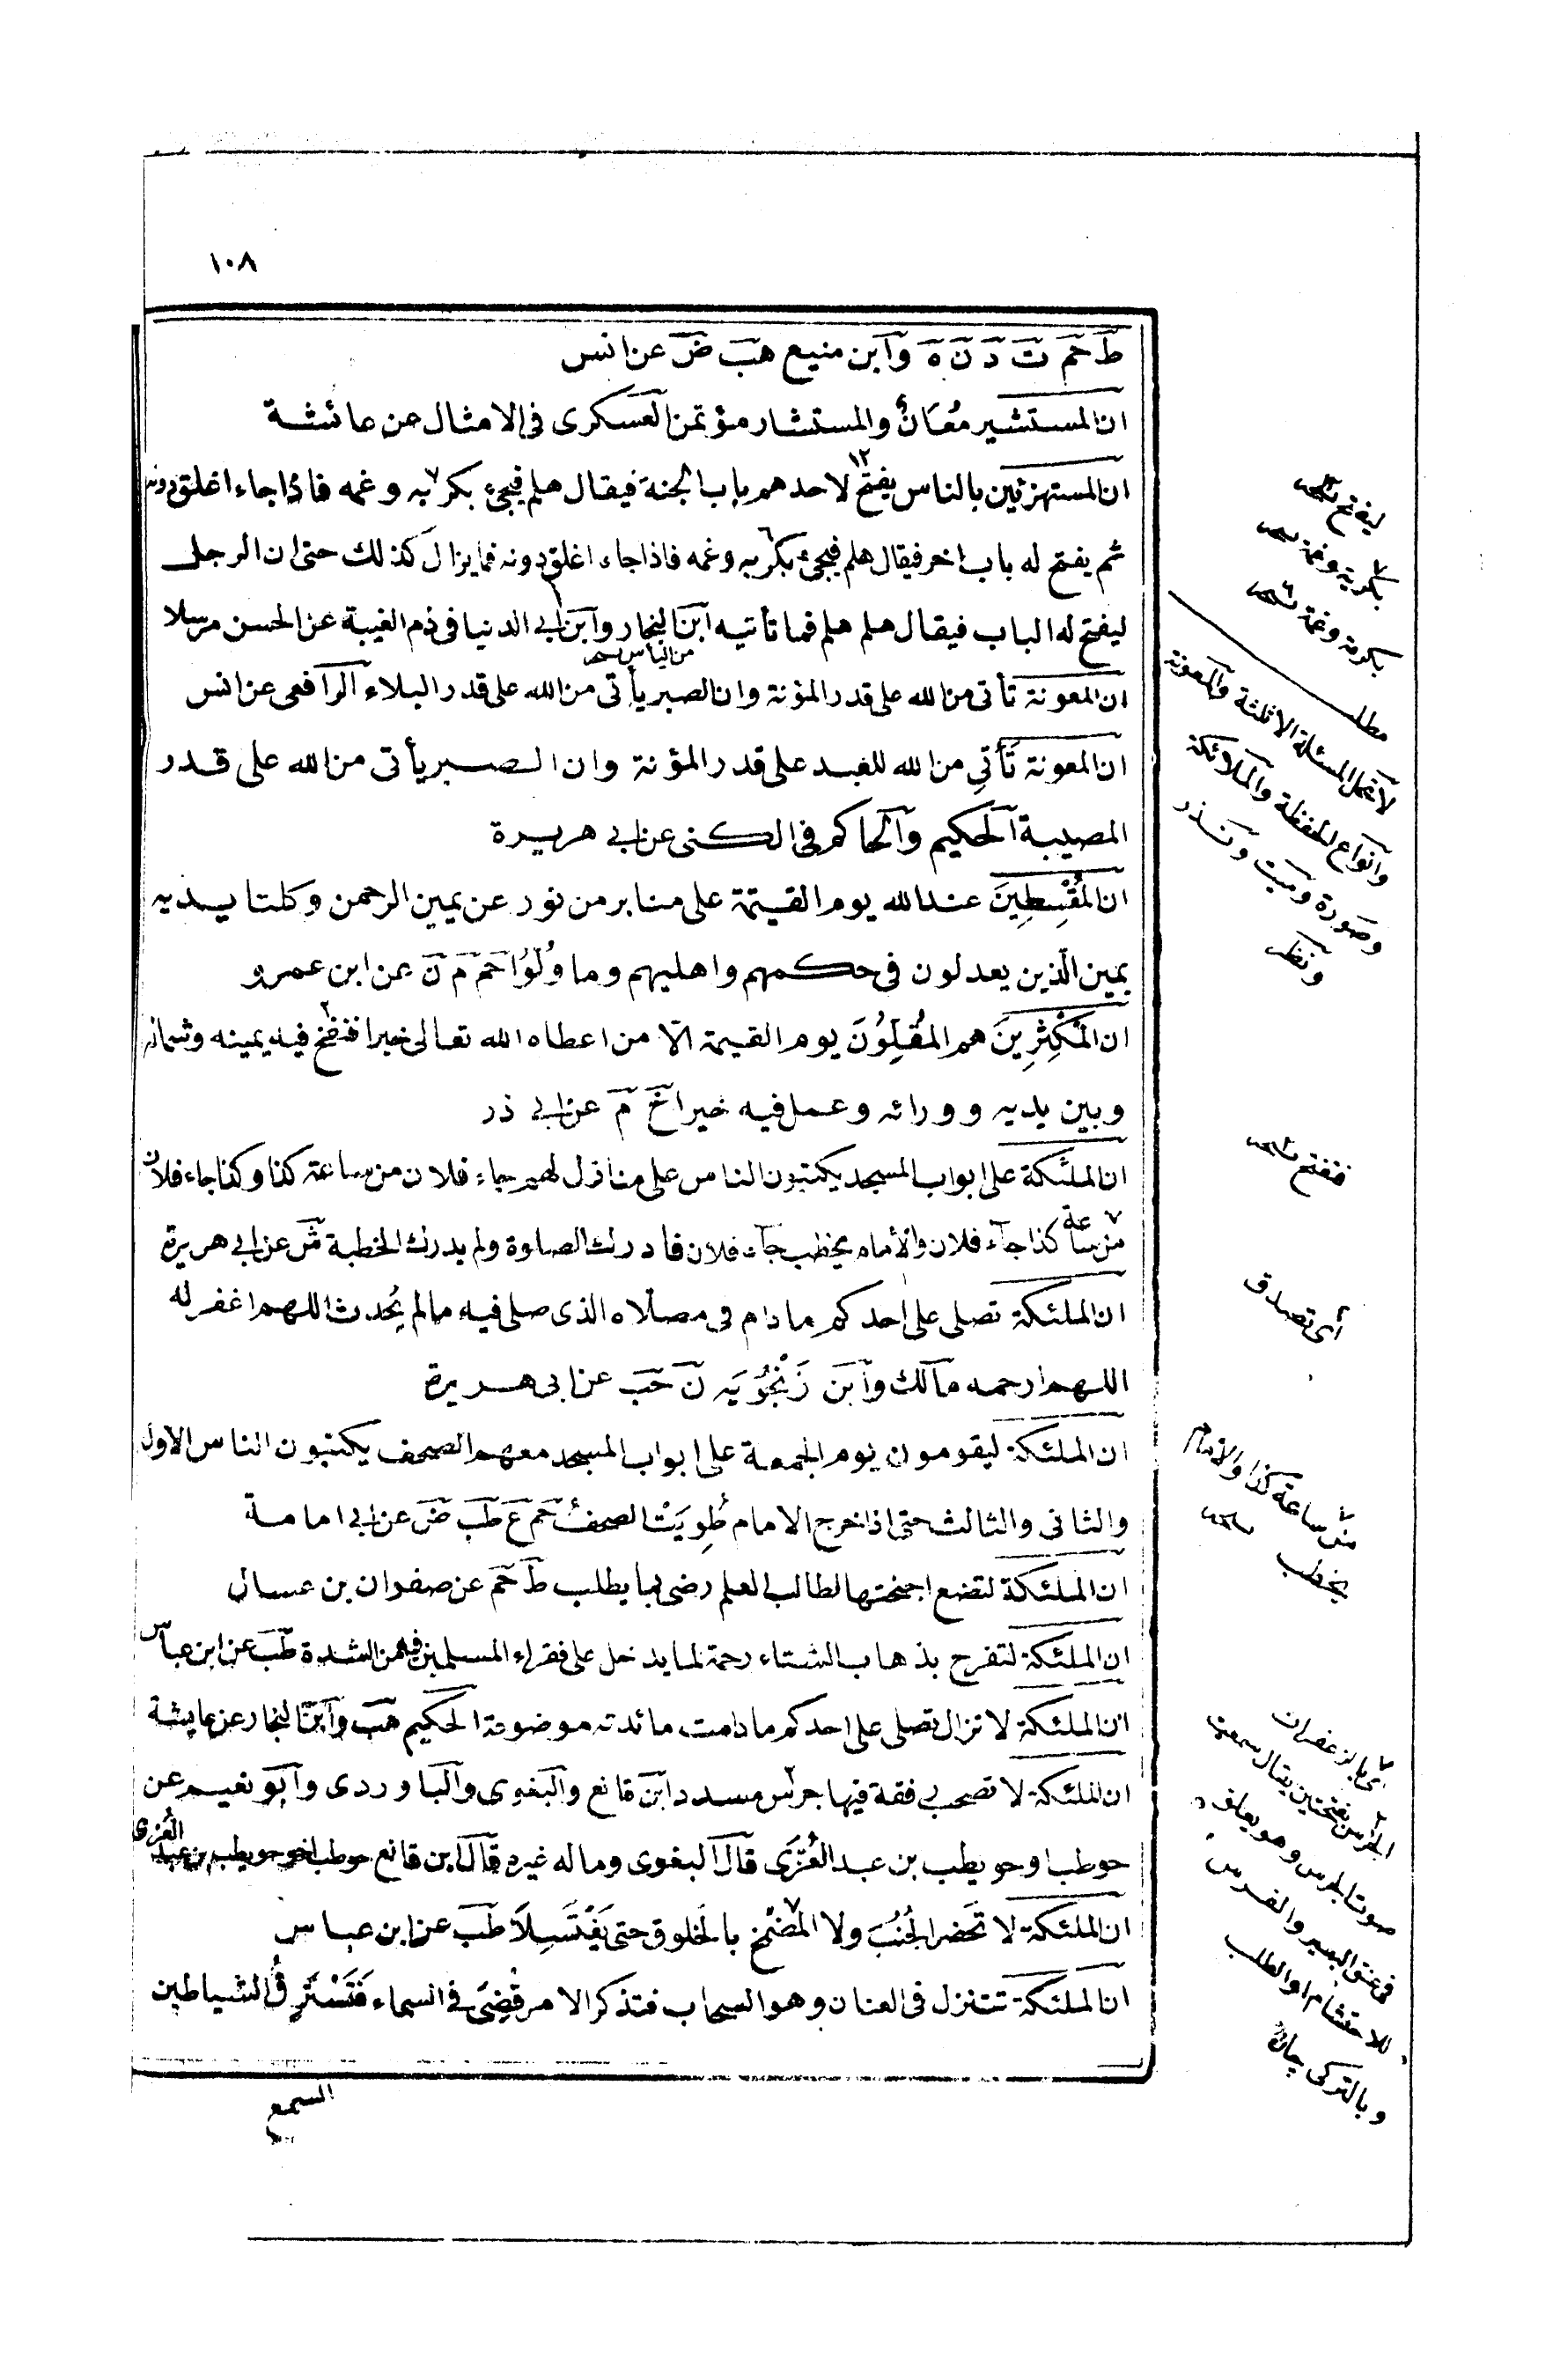 ١٠٨
ط حم ت د ن ه وابن منيع هب ض عن انس
ان المستشير مُعَانٌ والمستشار مؤتمن العسكرى فى الامثال عن عائشة
ان المستهزئين بالناس يفتح لاحدهم باب الجنة فيقال هلم فيجئ بكربه وغمه فاذا جاء اغلق دونه
ثم يفتح له باب اخر فيقال هلم فيجئ بكربه وغمه فاذا جاء اغلق دونه فما يزال كذلك حتى ان الرجل
ليفتح له الباب فيقال هلم هلم فما تأتيه ابن النجار وابن ابى الدنيا فى ذم الغيبة عن الحسن مرسلا
من الياس نسخه
ان المعونة تأتى من الله على قدر المؤنة وان الصبر يأتى من الله على قدر البلاء الرافعى عن انس
ان المعونة تَأتِي من الله للعبد على قدر المؤنة وان الصبر يأتى من الله على قدر
المصيبة الحكيم والحاكم فى الكنى عن ابى هريرة
ان المُقْسِطِينَ عند الله يوم القيمة على منابر من نور عن يمين الرحمن وكلتا يديه
يمين الّذين يعدلون فى حكمهم واهليهم وما وُلُّوا حم م ن عن ابن عمرو
ان المُكْثِرِينَ هم المُقِلّوُنَ يوم القيمة الّا من اعطاه الله تعالى خيرا فنفخ فيه يمينه وشماله
وبين يديه وورائه وعمل فيه خيرا خ م عن ابى ذر
ان الملئكة على ابواب المسجد يكتبون الناس على منازلهم جاء فلان من ساعة كذا وكذا جاء فلان
من ساعة كذا جاء فلان والأمام يخطب جاء فلان فادرك الصلوة ولم يدرك الخطبة ش عن ابى هريرة
ان الملئكة تصلى على احدكم مادام فى مصلاه الذى صلى فيه مالم يُحدث اللهم اغفر له
اللهم ارحمه مالك وابن زَنْجُوَيَه ن حب عن ابى هريرة
ان الملئكة ليقومون يوم الجمعة على ابواب المسجد معهم الصحف يكتبون الناس الاول
والثانى والثالث حتى اذا خرج الامام طُوِيَتْ الصحفُ حم ع طب ض عن ابى امامة
ان الملئكة لتضع اجنحتها لطالب العلم رضى بما يطلب ط حم عن صفوان بن عسال
ان الملئكة لتفرح بذهاب الشتاء رحمة لما يدخل على فقراء المسلمين فيه من الشدة طب عن ابن عباس
ان الملئكة لا تزال تصلى على احدكم ما دامت مائدته موضوعة الحكيم هب وابن النجار عن عايشة
ان الملئكة لا تصحب رفقة فيها جرس مسدد وابن قانع والبغوى والباوردى وابو نعيم عن
حوطب او حويطب بن عبد العُزَّى قال البغوى وماله غيره قال ابن قانع حوطب اخو حويطب بن عبد العُزى
ان الملئكة لا تَحضر الجُنُبَ ولا المُضَمَّخ بالخلوق حتى يَغْتَسِلاَ طب عن ابن عباس
ان الملئكة تتنزل فى العنان وهو السحاب فتذكر الامر قُضِىَ فى السماء فَتَسْتَرِقُ الشياطين
السمع
ليفتح نسخه
بكربة وغمة نسخه
بكربة وغمة نسخه
مطلب
لا تحمل المسئلة الا ثلثة والمعونة
وانواع الحفظة والملائكة
وصورة وميت ونذر
ونظر
فنفح نسخه
أى تصدق
من ساعة كذا والامام
يخطب نسخه
أى بالزعفران
الجرس بفتحتين يقال سمعت
صوت الجرس وهو يعلق
فى عنق البعير والفرس
للاحتشام او الطلب
وبالتركى چاڭ